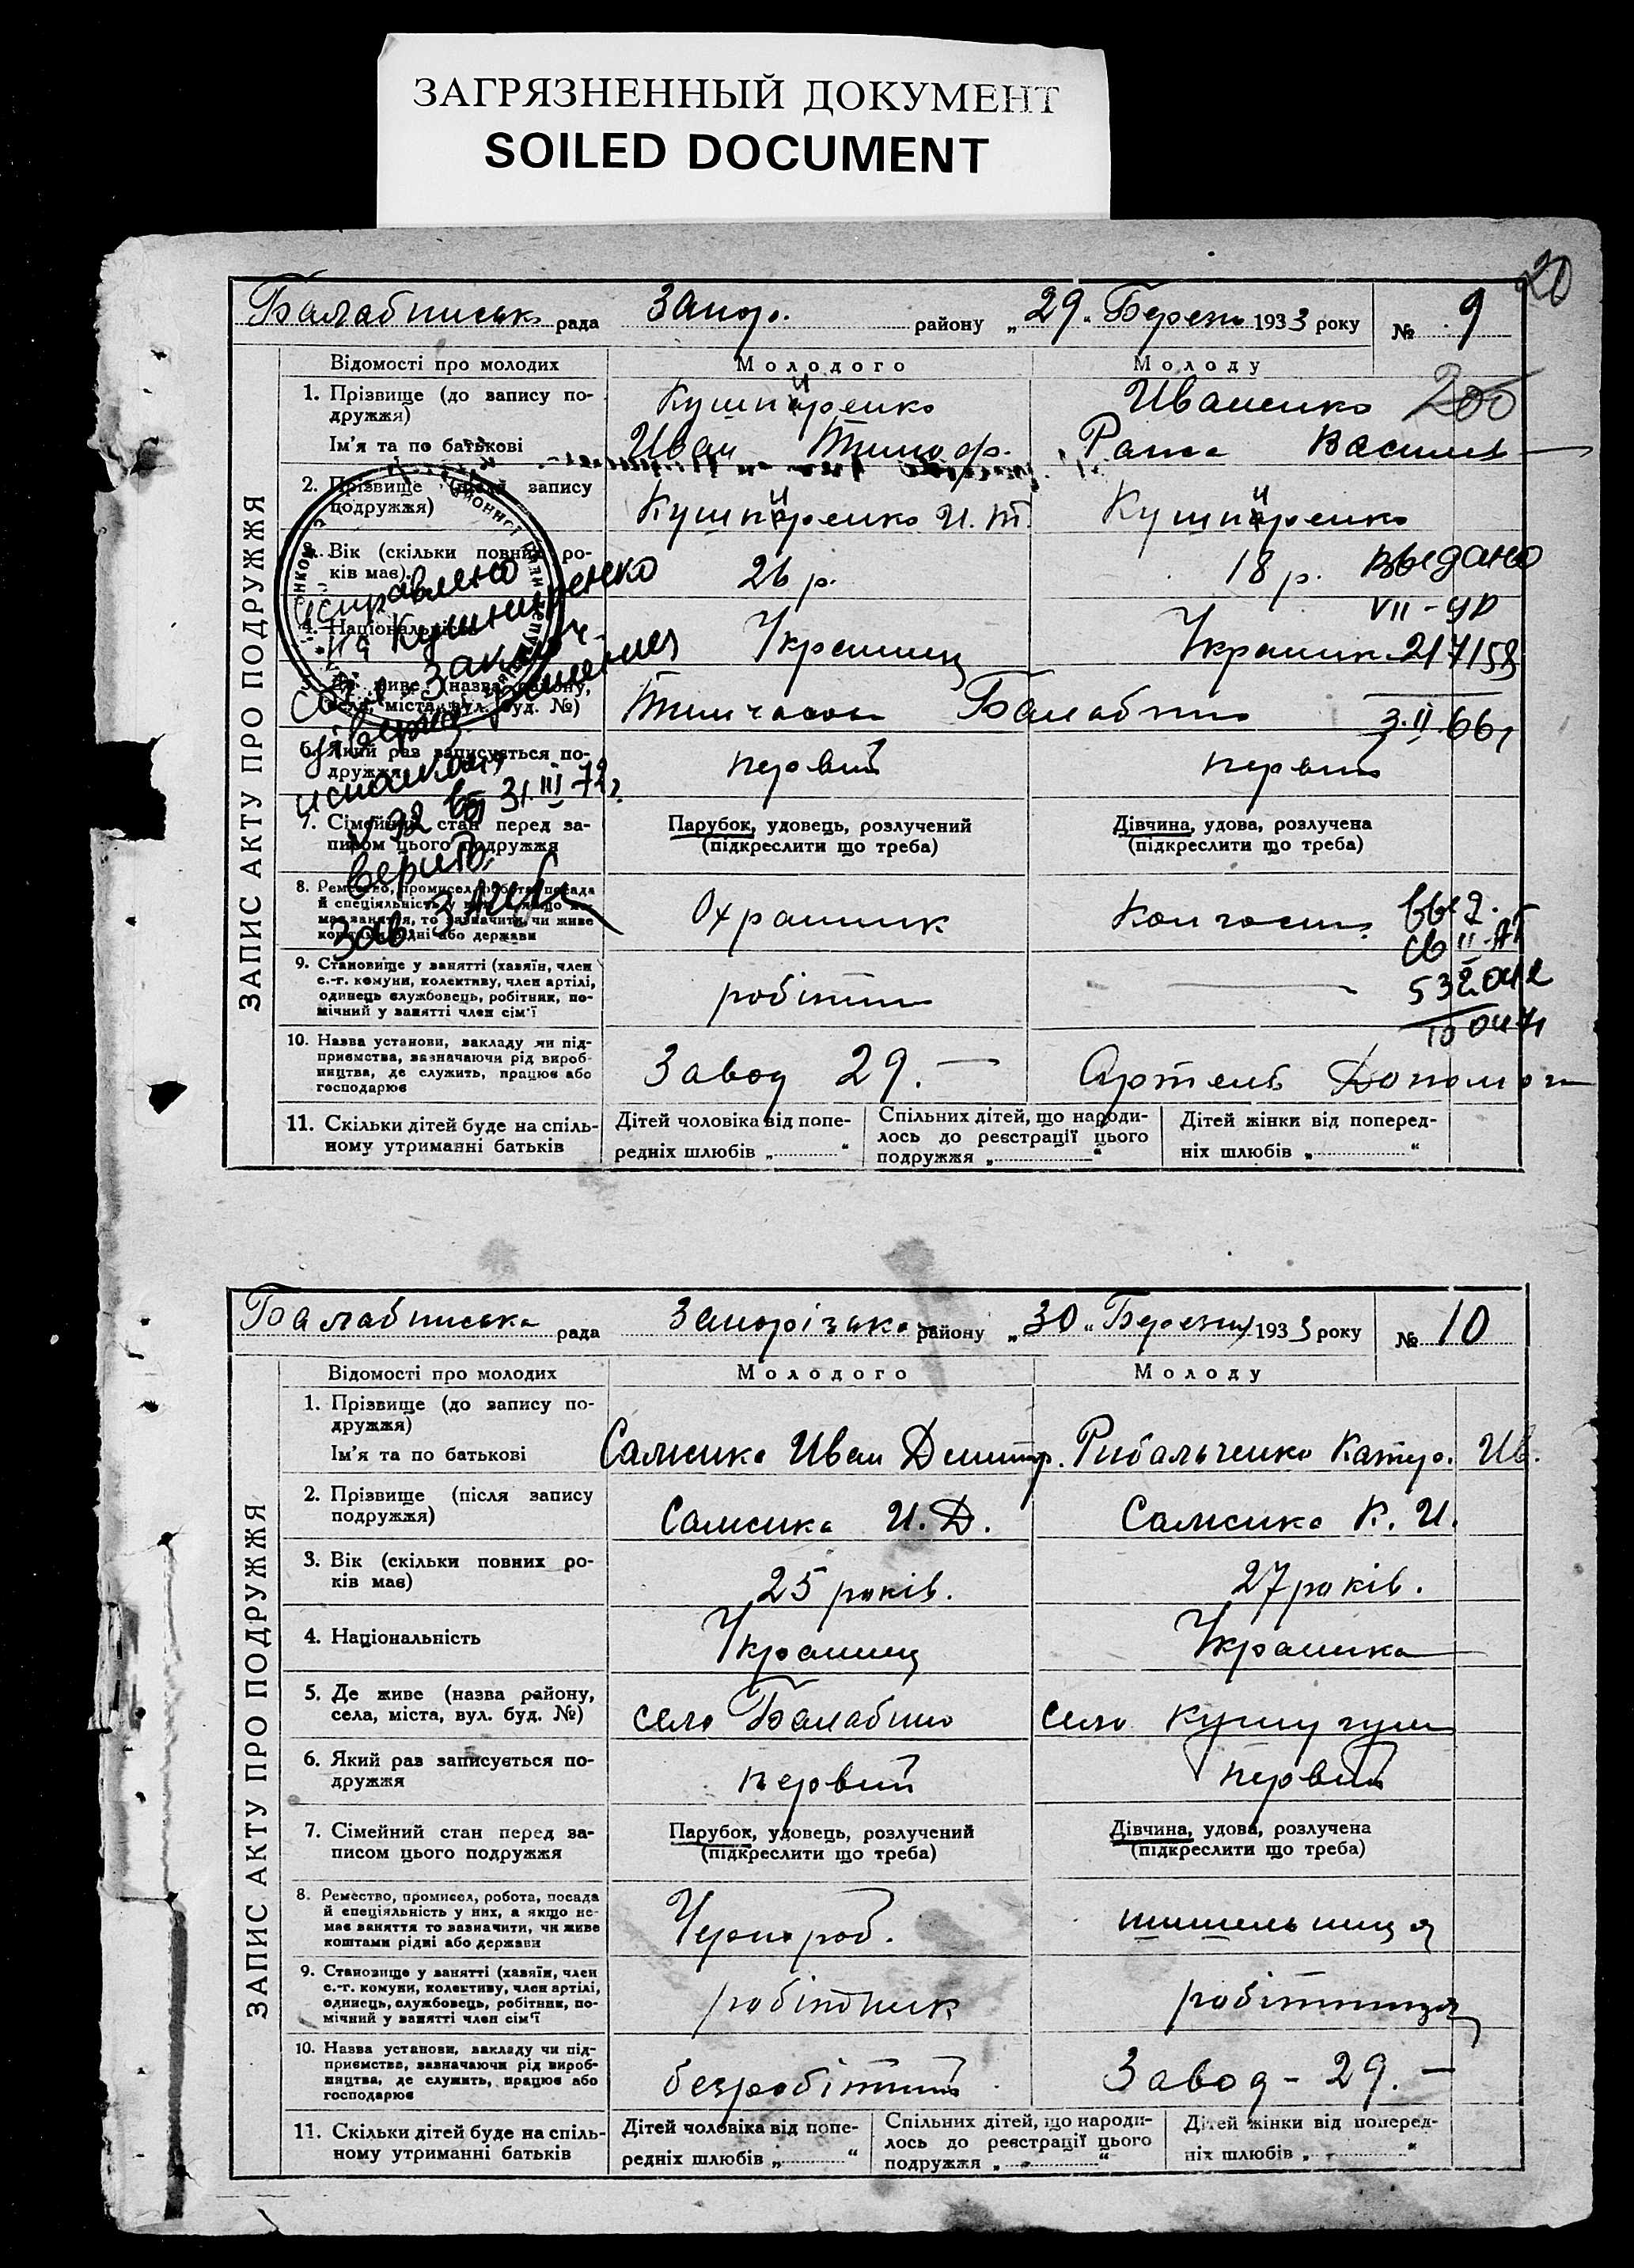 ЗАГРЯЗНЕННЫЙ ДОКУМЕНТ
SOILED DOCUMENT
20
Балабинськ рада Запор. району „29“ Березн 1933 року № 9
ЗАПИС АКТУ ПРО ПОДРУЖЖЯ
Відомості про молодих Молодого Молоду
1. Прізвище (до запису по-
дружжя) Кушниренко Иваненко
Ім'я та по батькові Иван Тимоф. Васильев
2. Прізвище (після запису
подружжя) Кушниренко И. Т. Кушниренко
3. Вік (скільки повних ро-
ків має) 26 р. 18 р. Выдано
VII-УР
4. Національність Украинец Украинк. 217158
3.II.66г
5. Де живе (назва району,
села, міста, вул. буд. №) Тимчасово Балабино
6. Який раз записується по-
дружжя первий первий
7. Сімейний стан перед за-
писом цього подружжя
Парубок, удовець, розлучений
(підкреслити що треба)
Дівчина, удова, розлучена
(підкреслити що треба)
8. Ремество, промисел, робота, посада
й спеціяльність у них, а якщо не-
має заняття, то зазначити, чи живе
коштами рідні або держави Охраник
Исправлено
на Кушниренко
31.III 72г.
верно:
Зав. З
9. Становище у занятті (хазяїн, член
с.-г. комуни, колективу, член артілі,
одинець службовець, робітник, по-
мічний у занятті член сім'ї робітник
10. Назва установи, закладу чи під-
приємства, зазначаючи рід вироб-
ництва, де служить, працює або
господарює Завод 29. — Артель Допомога
11. Скільки дітей буде на спіль-
ному утриманні батьків
Дітей чоловіка від попе-
редніх шлюбів „ “
Спільних дітей, що народи-
лось до реєстрації цього
подружжя „ “
Дітей жінки від поперед-
ніх шлюбів „ “
Балабинська рада Запорізька району „30“ Березня 1933 року № 10
ЗАПИС АКТУ ПРО ПОДРУЖЖЯ
Відомості про молодих Молодого Молоду
1. Прізвище (до запису по-
дружжя)
Ім'я та по батькові Иван Дмитр. Рибальченко Катер. Ив.
2. Прізвище (після запису
подружжя) И. Д. К. И.
3. Вік (скільки повних ро-
ків має) 25 років. 27 років.
4. Національність Украинец Украинка
5. Де живе (назва району,
села, міста, вул. буд. №) село Балабино село Кушугум
6. Який раз записується по-
дружжя первий первий
7. Сімейний стан перед за-
писом цього подружжя
Парубок, удовець, розлучений
(підкреслити що треба)
Дівчина, удова, розлучена
(підкреслити що треба)
8. Ремество, промисел, робота, посада
й спеціяльність у них, а якщо не-
має заняття то зазначити, чи живе
коштами рідні або держави Чернороб.
9. Становище у занятті (хазяїн, член
с.-г. комуни, колективу, член артілі,
одинець, службовець, робітник, по-
мічний у занятті член сім'ї робітник робітниця
10. Назва установи, закладу чи під-
приємства, зазначаючи рід вироб-
ництва, де служить, працює або
господарює безробітний Завод - 29. —
11. Скільки дітей буде на спіль-
ному утриманні батьків
Дітей чоловіка від попе-
редніх шлюбів „ “
Спільних дітей, що народи-
лось до реєстрації цього
подружжя „ “
Дітей жінки від поперед-
ніх шлюбів „ “